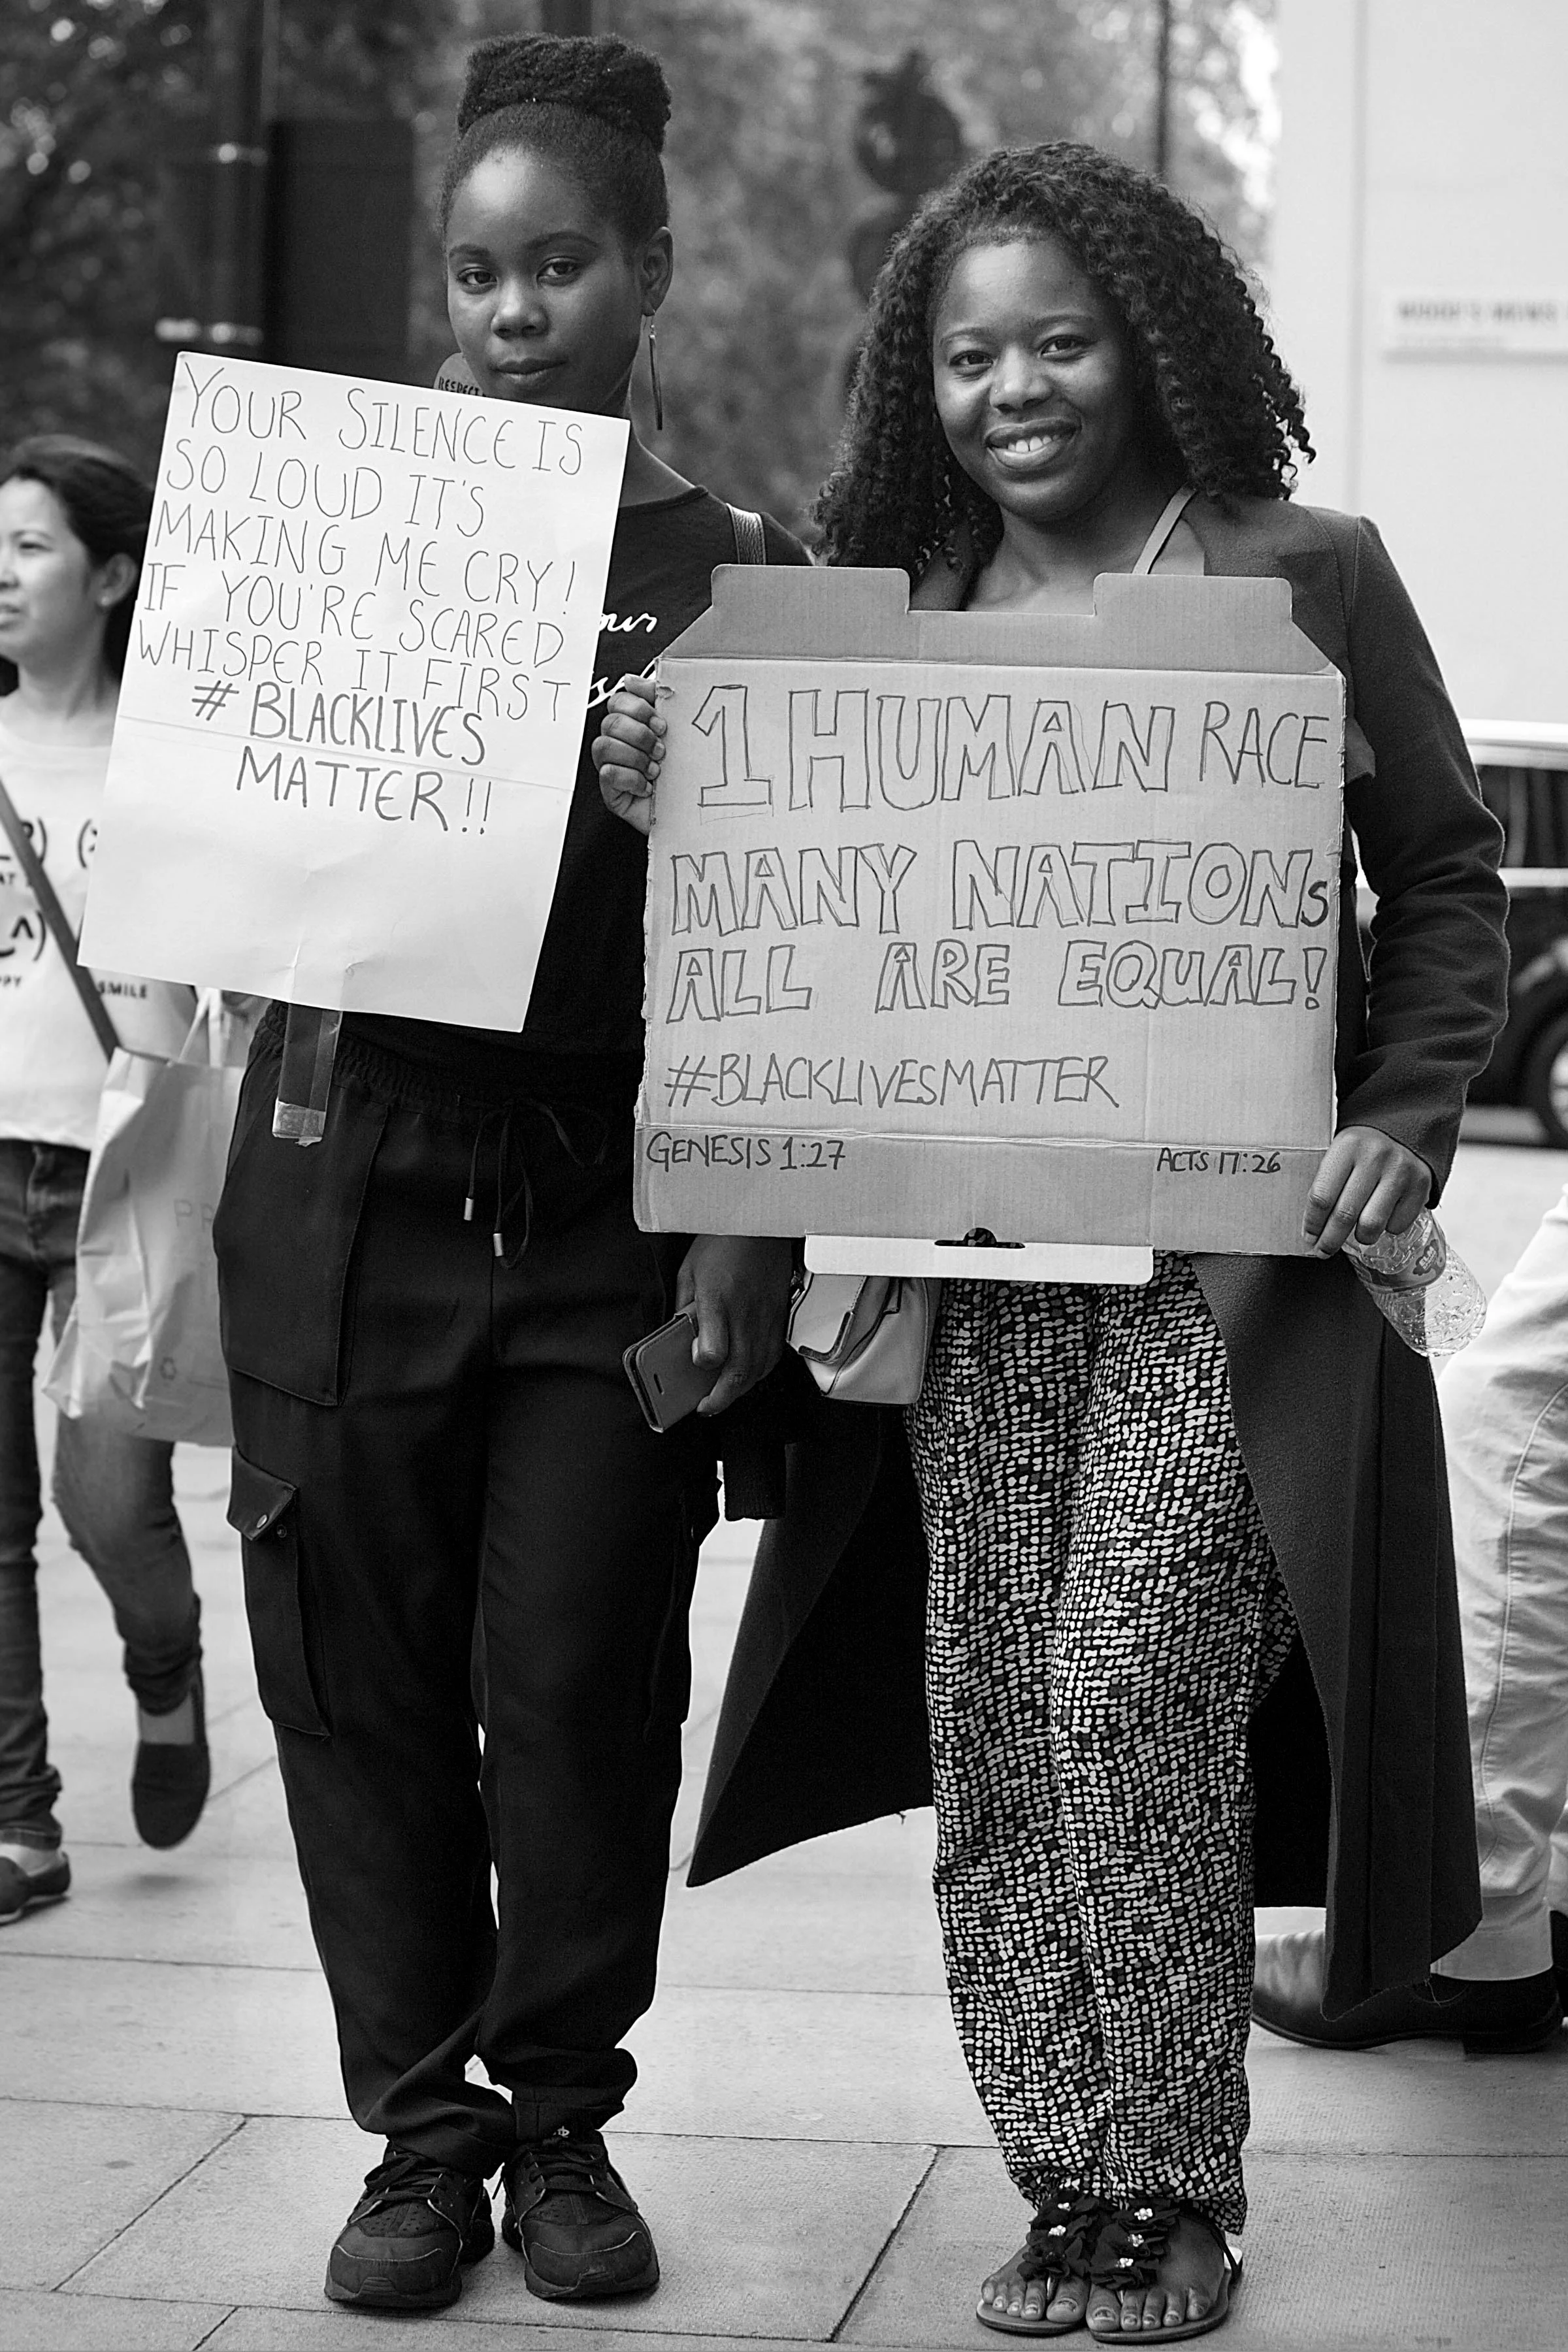 YOUR SILENCE IS
SO LOUD IT'S
MAKING ME CRY!
IF YOU'RE SCARED
WHISPER IT FIRST
# BLACKLIVES
MATTER!!
RESPECT
1 HUMAN RACE
MANY NATIONS
ALL ARE EQUAL!
#BLACKLIVESMATTER
GENESIS 1:27 ACTS 17:26
SMILE